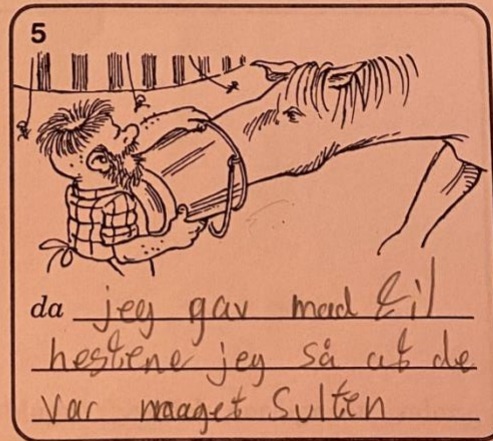 5
da jeg gav mad til
hestene jeg så at de
var maaget Sulten